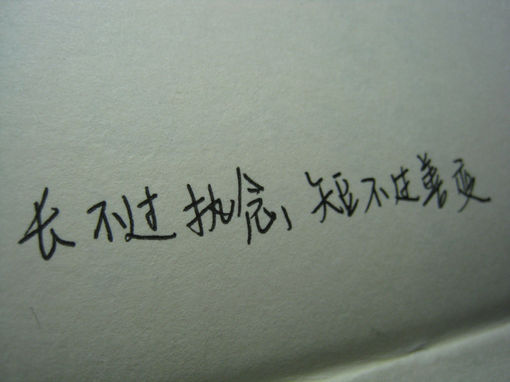 长不过执念，短不过善变